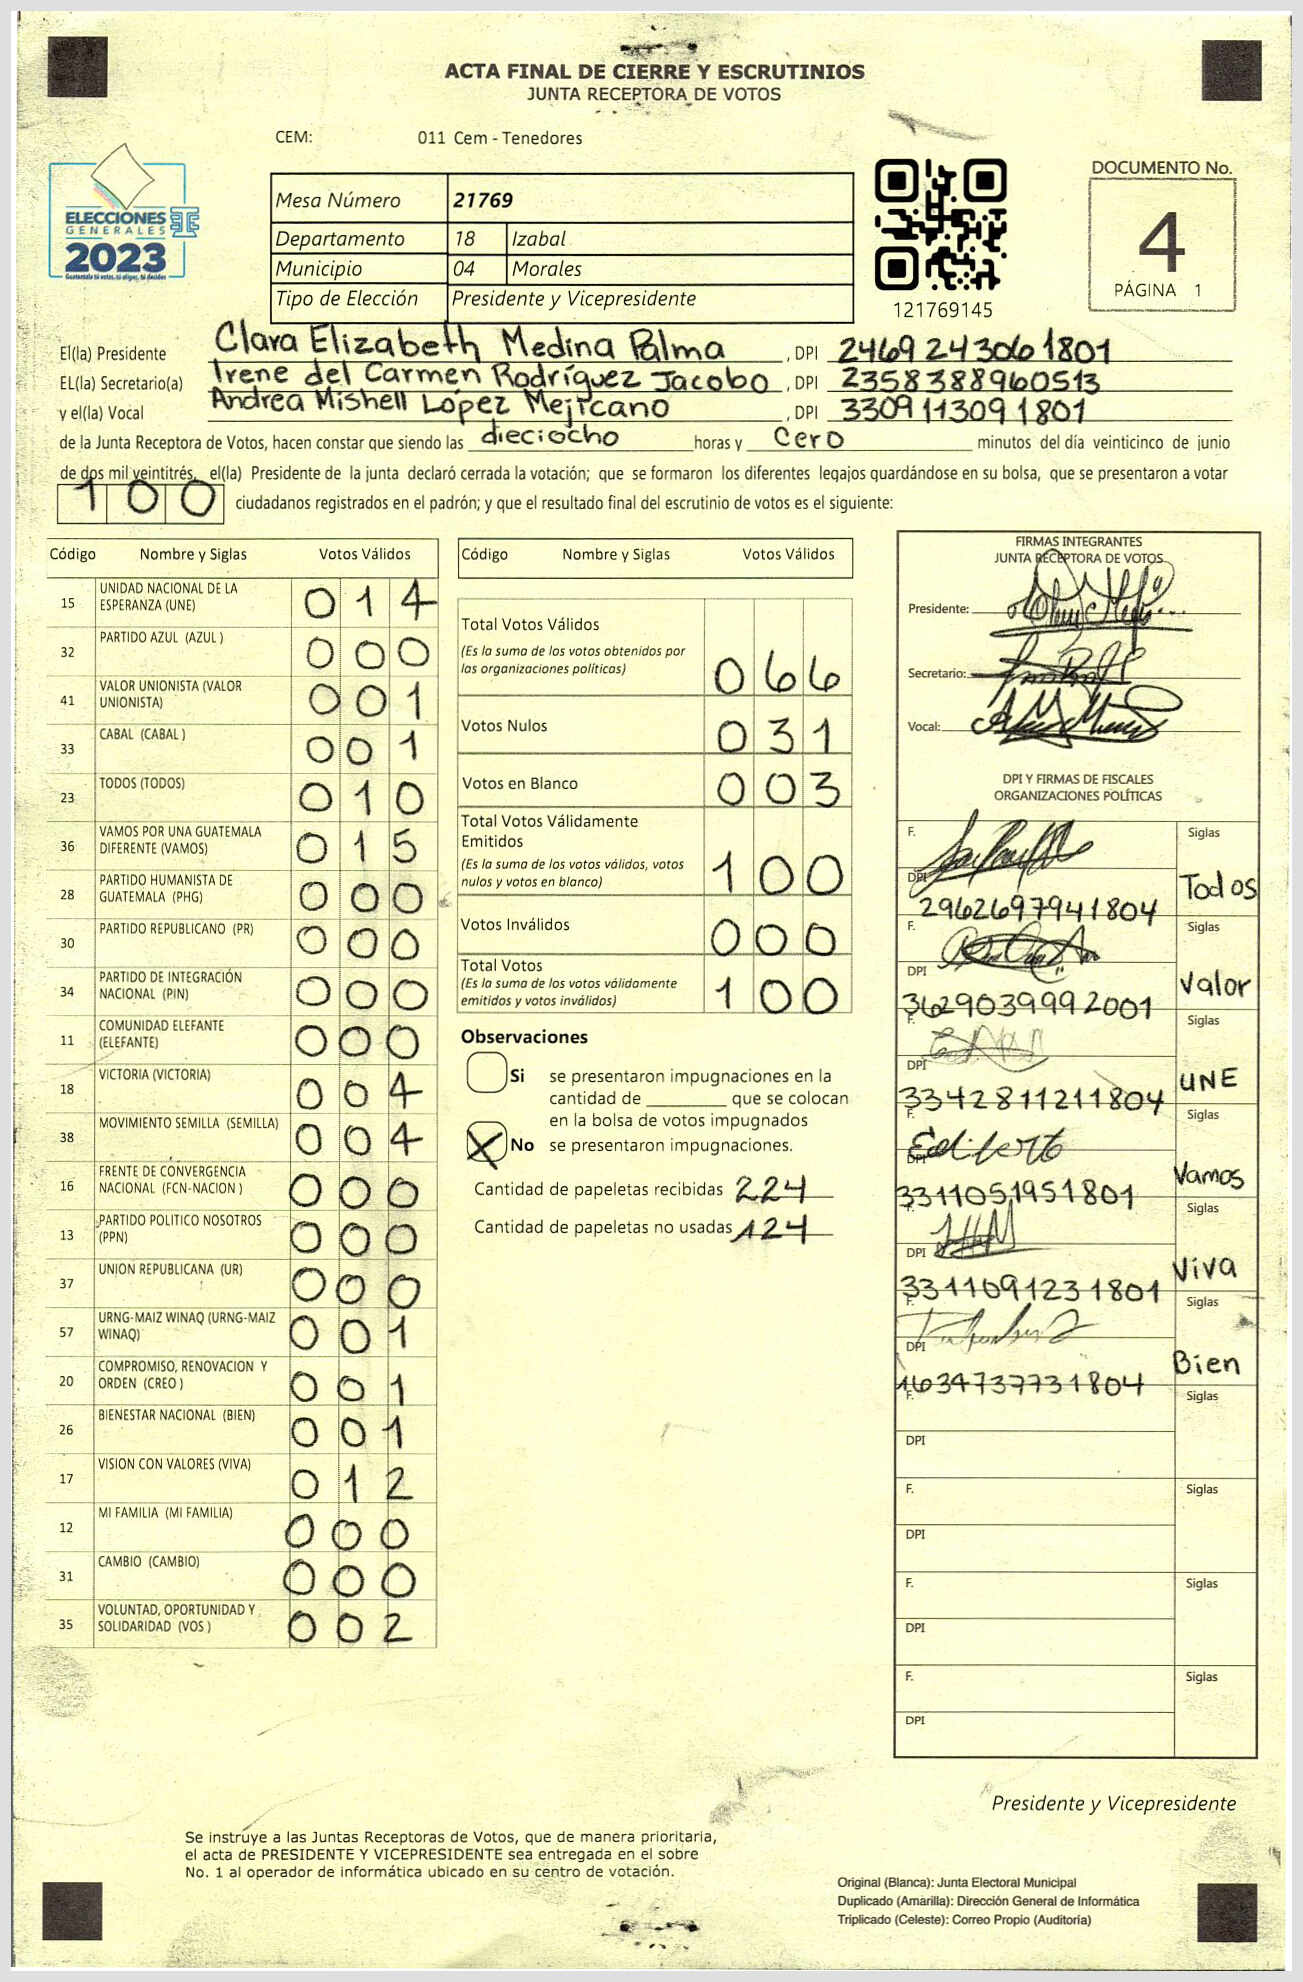 ACTA FINAL DE CIERRE Y ESCRUTINIOS
JUNTA RECEPTORA DE VOTOS
CEM: 011 Cem - Tenedores
ELECCIONES
GENERALES
2023
Guatemala tú votas, tú eliges, tú decides
Mesa Número 21769
Departamento 18 Izabal
Municipio 04 Morales
Tipo de Elección Presidente y Vicepresidente
121769145
DOCUMENTO No.
4
PÁGINA 1
El(la) Presidente Clara Elizabeth Medina Palma , DPI 2469243061801
EL(la) Secretario(a) Irene del Carmen Rodríguez Jacobo , DPI 2358388960513
y el(la) Vocal Andrea Mishell López Mejicano , DPI 3309113091801
de la Junta Receptora de Votos, hacen constar que siendo las dieciocho horas y cero minutos del día veinticinco de junio
de dos mil veintitrés, el(la) Presidente de la junta declaró cerrada la votación; que se formaron los diferentes legajos quardándose en su bolsa, que se presentaron a votar
100 ciudadanos registrados en el padrón; y que el resultado final del escrutinio de votos es el siguiente:
Código Nombre y Siglas Votos Válidos
15 UNIDAD NACIONAL DE LA ESPERANZA (UNE) 014
32 PARTIDO AZUL (AZUL ) 000
41 VALOR UNIONISTA (VALOR UNIONISTA) 001
33 CABAL (CABAL ) 001
23 TODOS (TODOS) 010
36 VAMOS POR UNA GUATEMALA DIFERENTE (VAMOS) 015
28 PARTIDO HUMANISTA DE GUATEMALA (PHG) 000
30 PARTIDO REPUBLICANO (PR) 000
34 PARTIDO DE INTEGRACIÓN NACIONAL (PIN) 000
11 COMUNIDAD ELEFANTE (ELEFANTE) 000
18 VICTORIA (VICTORIA) 004
38 MOVIMIENTO SEMILLA (SEMILLA) 004
16 FRENTE DE CONVERGENCIA NACIONAL (FCN-NACION ) 000
13 PARTIDO POLITICO NOSOTROS (PPN) 000
37 UNION REPUBLICANA (UR) 000
57 URNG-MAIZ WINAQ (URNG-MAIZ WINAQ) 001
20 COMPROMISO, RENOVACION Y ORDEN (CREO ) 001
26 BIENESTAR NACIONAL (BIEN) 001
17 VISION CON VALORES (VIVA) 012
12 MI FAMILIA (MI FAMILIA) 000
31 CAMBIO (CAMBIO) 000
35 VOLUNTAD, OPORTUNIDAD Y SOLIDARIDAD (VOS ) 002
Código Nombre y Siglas Votos Válidos
Total Votos Válidos
(Es la suma de los votos obtenidos por
las organizaciones políticas) 066
Votos Nulos 031
Votos en Blanco 003
Total Votos Válidamente
Emitidos
(Es la suma de los votos válidos, votos
nulos y votos en blanco) 100
Votos Inválidos 000
Total Votos
(Es la suma de los votos válidamente
emitidos y votos inválidos) 100
Observaciones
Si se presentaron impugnaciones en la
cantidad de ________ que se colocan
en la bolsa de votos impugnados
X No se presentaron impugnaciones.
Cantidad de papeletas recibidas 224
Cantidad de papeletas no usadas 124
FIRMAS INTEGRANTES
JUNTA RECEPTORA DE VOTOS
Presidente:
Secretario:
Vocal:
DPI Y FIRMAS DE FISCALES
ORGANIZACIONES POLÍTICAS
F. Siglas
DPI 2962697941804 Todos
F. Siglas
DPI 3629039992001 Valor
F. Siglas
DPI 3342811211804 UNE
F. Edilberto Siglas
DPI 3311051951801 Vamos
F. Siglas
DPI 3311091231801 Viva
F. Siglas
DPI 1634737731804 Bien
F. Siglas
DPI
F. Siglas
DPI
F. Siglas
DPI
F. Siglas
DPI
Presidente y Vicepresidente
Se instruye a las Juntas Receptoras de Votos, que de manera prioritaria,
el acta de PRESIDENTE Y VICEPRESIDENTE sea entregada en el sobre
No. 1 al operador de informática ubicado en su centro de votación.
Original (Blanca): Junta Electoral Municipal
Duplicado (Amarilla): Dirección General de Informática
Triplicado (Celeste): Correo Propio (Auditoría)